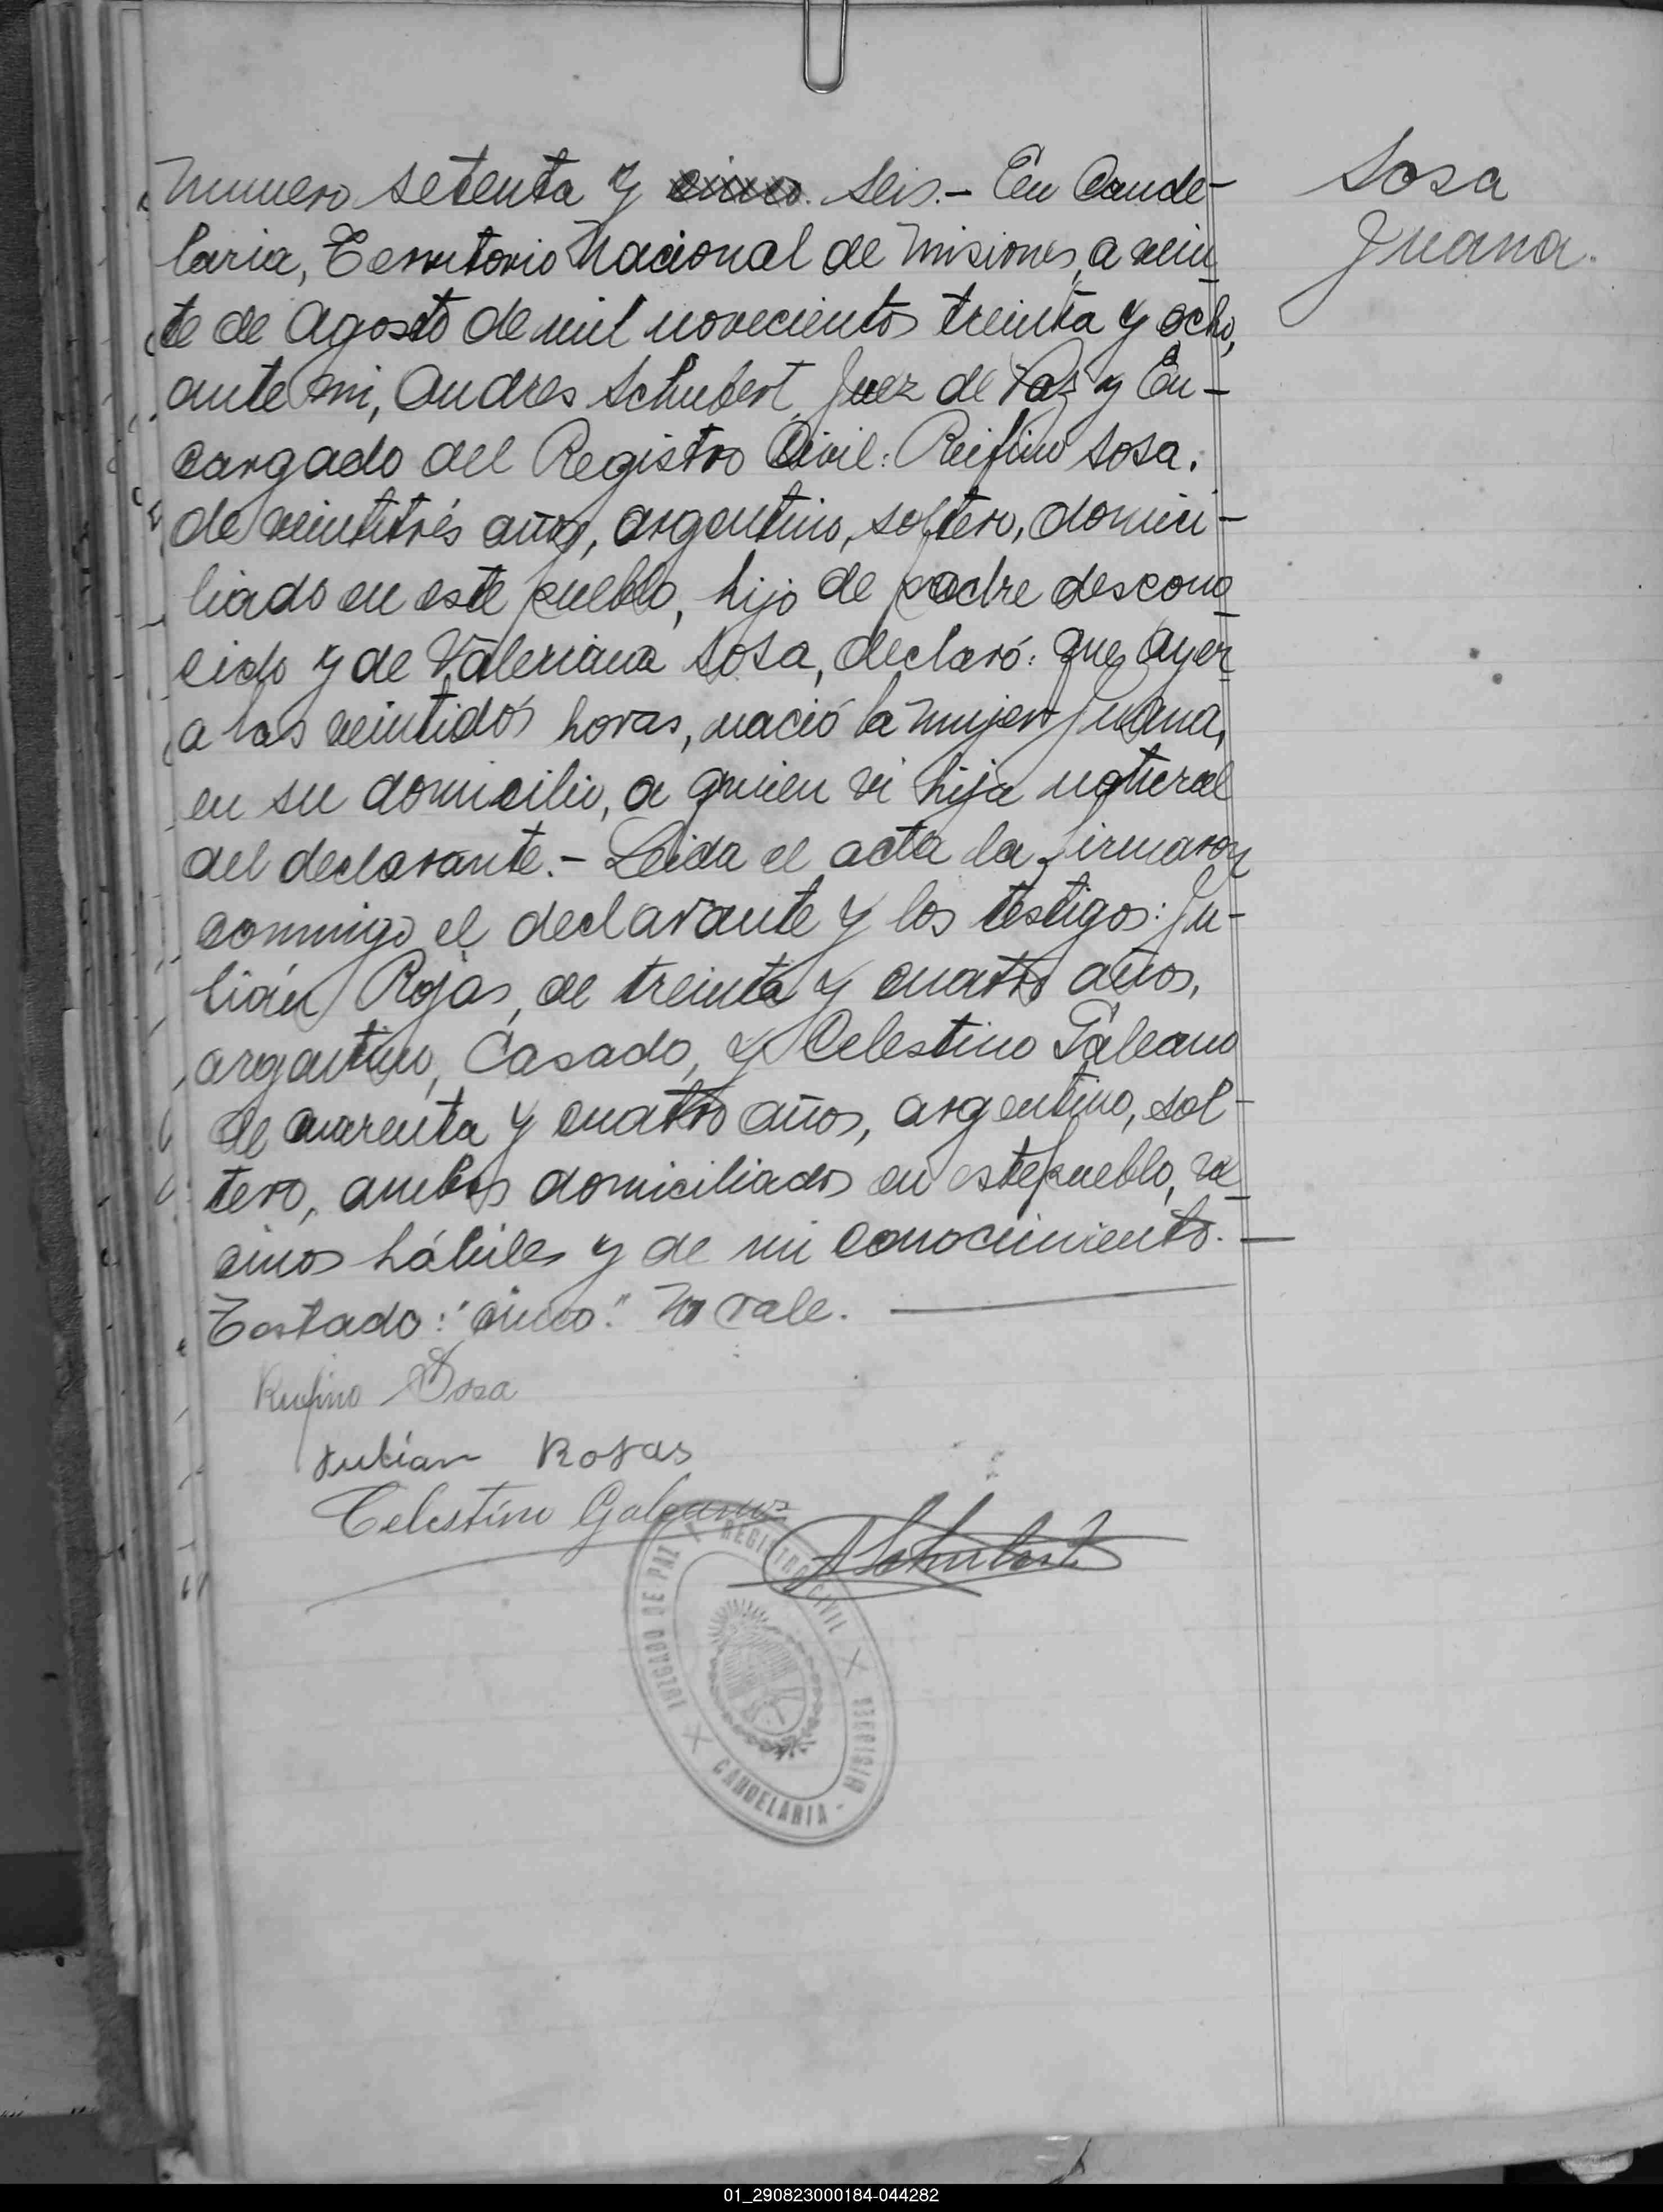 Numero setenta y cinco. seis.- En Cande-
laria, Territorio Nacional de Misiones, a vein
te de Agosto de mil novecientos treinta y ocho,
ante mi, Andres Schubert, Juez de Paz y En-
cargado del Registro Civil: Rufino Sosa.
de veintitrés años, argentino, soltero, domici-
liado en este pueblo, hijo de padre descono
cido y de Valeriana Sosa, declaró: que ayer
a las veintidós horas, nació la mujer Juana,
en su domicilio, a quien vi hija natural
del declarante.- Leida el acta la firmaron
conmigo el declarante y los testigos: Ju-
lián Rojas, de treinta y cuatro años,
argentino, Casado, y Celestino Galeano
de cuarenta y cuatro años, argentino, sol-
tero, ambos domiciliados en este pueblo, ve
cinos hábiles y de mi conocimiento.-
Testado: "cinco". No vale.
Sosa
Juana.
Rufino Sosa
Julián Rojas
Celestino Galeano
ASchubert
JUZGADO DE PAZ X REGISTRO CIVIL X
X CANDELARIA - MISIONES
01_290823000184-044282